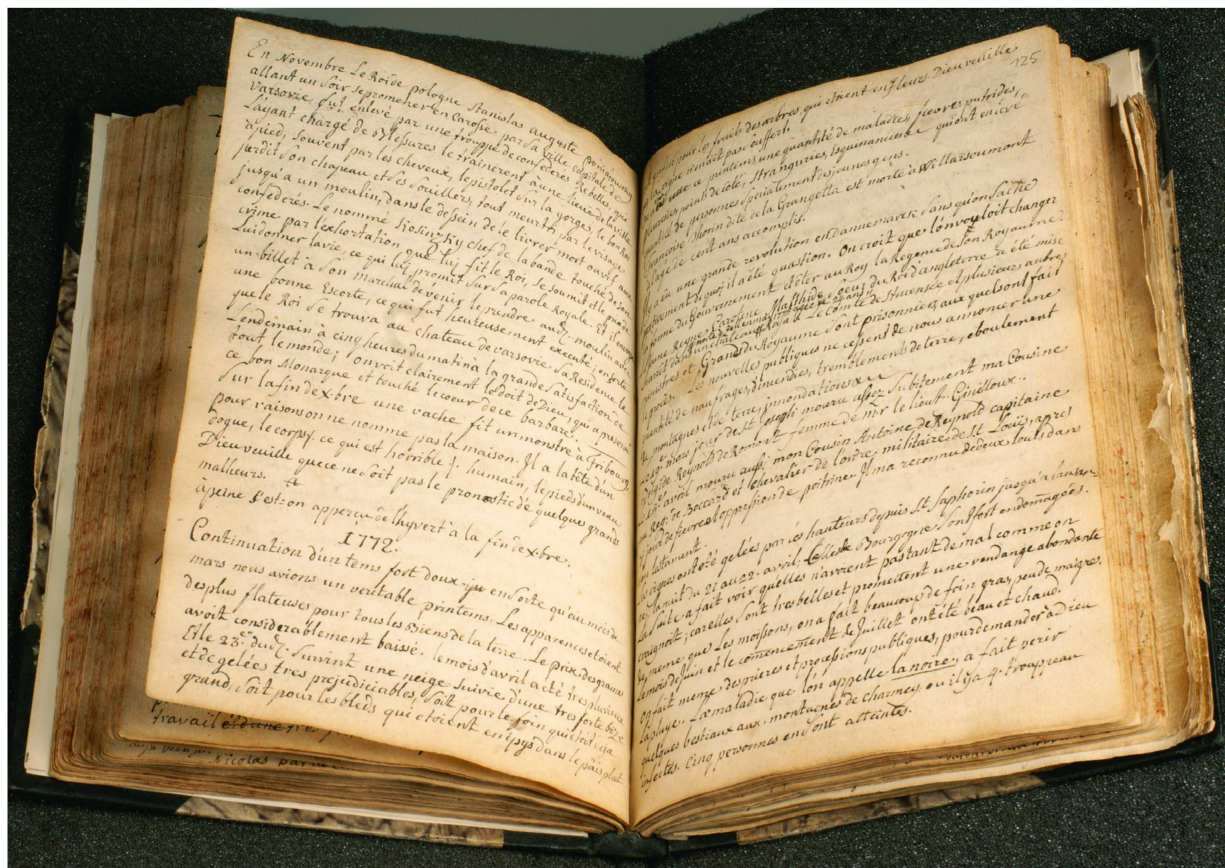 En Novembre Le Roi de pologne Stanislas Auguste Poniatowsky
allant un soir se promener en Carosse par sa ville capitale de
varsovie fut enlevé par une trouppe de confederes Rebelles, qui
L'ayant chargé de blessures le trainerent a une lieue de la ville
à pied, souvent par les cheveux, le pistolet sur la gorge, le bon Roi
perdit son chapeau et ses souliers, tout meurtri par le visage
jusqu'a un moulin, dans le dessein de le livrer mort ou vif aux
confederes. Le nommé Kosinzky chef de la bande touché de son
crime par l'exhortation que lui fit le Roi, se soumit et le pria de
Lui donner la vie, ce qui lui promit sur sa parole Royale. Et il envoya
un billet à son marchal de venir le prendre au d. moulin avec
une bonne Escorte, ce qui fut heureusement executé, en sorte
que le Roi se trouva au chateau de varsovie sa Residence le
Lendemain à cinq heures du matin à la grande satisfaction de
tout le monde; on voit clairement le doit de Dieu, qui a preservé
ce bon Monarque et touché le coeur de ce barbare.
Sur la fin de x.bre une vache fit un monstre à Fribourg
pour raisons on ne nomme pas la maison. Il a la tête d'un
dogue, le corps, ce qui est horrible!, humain, les pieds d'un veau
Dieu veuille que ce ne soit pas le pronostic de quelques grands
malheurs.
à peine s'est on apperçu de l'hyvert à la fin de x.bre.
1772.
Continuation d'un tems fort doux en sorte qu'au mois de
mars nous avions un veritable printems. Les apparences etoient
des plus flateuses pour tous les Biens de la terre. Le prix des grains
avoit considerablement baissé. le mois d'avril a eté tres pluvieux
Et le 23e du d. survint une neige suivie d'une tres forte bize
et de gelées tres prejudiciables, soit pour le foin qui étoit ja
grand, soit pour les bleds qui étoient en épys dans le païs plat
travail et d'une
Nicolas
125
soit pour les fruits des arbres, qui étoient en fleurs. Dieu veuille
que la vigne n'ait pas souffert.
Il y a eu ce printems une quantité de maladies, fievres putrides,
pleuresies, points de côtes, stranguries, Esquinancies qui ont enlevé
quantité de personnes specialement des jeunes gens.
françoise Thorin dite de la Grangetta est morte à villarsoumont
agée de cent ans accomplis.
Il y a eu une grande revolution en dannemarck sans qu'on sache
certainement de quoi il a été question. On croit que l'on vouloit changer
forme du Gouvernement et ôter au Roy la Regence de son Royaume
La jeune Reyne Caroline Mathilde soeur du Roi d'angleterre a été mise
dans un chateau Royal. Le Comte de Struensée et plusieurs autres
ministres et Grands du Royaume sont prisonniers, aux quels on fait
le procès.
Les nouvelles publiques ne cessent de nous annoncer une
quantité de naufrages, d'incendies, tremblements de terre, eboulement
de montagnes et de terre, innondations &c.
Le 19 mars jour de st. joseph mourut assez subitement ma Cousine
née de Reynold de Romont femme de mr. le lieut. Griselloux.
avril mourut aussi mon Cousin Antoine de Reynold capitaine
au Reg. de Boccard et chevalier de l'ordre militaire de st. Louis, apres
jours de fievre et oppression de poitrine. Il m'a reconnu de deux louis dans
son testament.
Les vignes ont été gelées par les hauteurs depuis st. Saphorin jusqu'à lausanne
la nuit du 21 au 22. avril, Celles de Bourgogne sont fort endomagées.
La suite a fait voir quelles n'avoient pas tant de mal comme on
craignoit; car elles sont tres belles et promettent une vendange abondante
de meme que les moissons, on a fait beaucoup de foin gras, peu de maigre.
Le mois de juin et le comencement de juillet ont été beau et chaud.
On fait meme des prieres et processions publiques, pour demander à dieu
La pluye. La maladie que l'on appelle la noire, a fait perir
quelques bestiaux aux montagnes de charmey, ou il y a 4. trouppeau
infectés. Cinq personnes en sont atteintes.